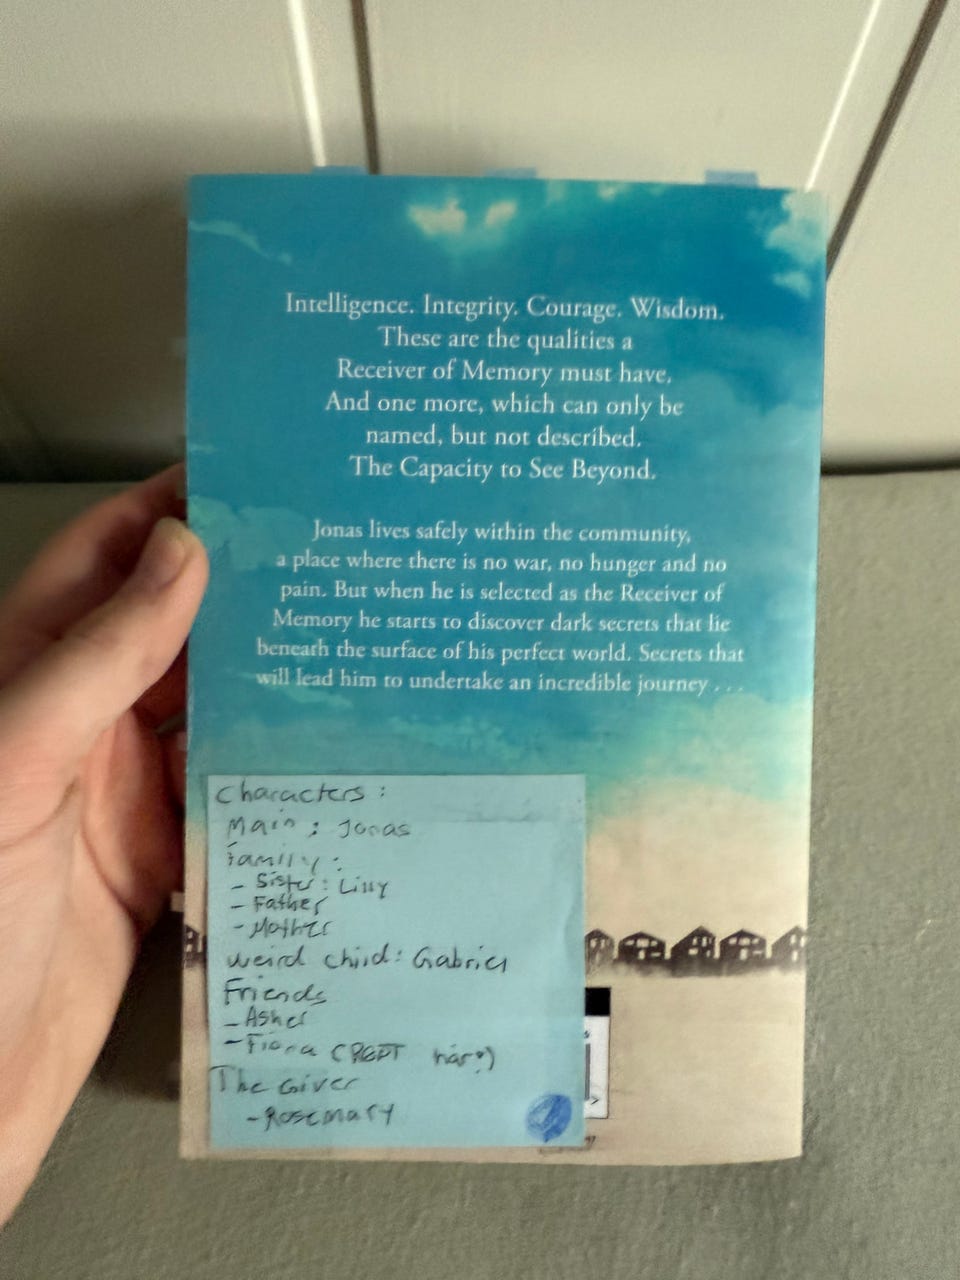 Intelligence. Integrity. Courage. Wisdom.
These are the qualities a
Receiver of Memory must have.
And one more, which can only be
named, but not described.
The Capacity to See Beyond.
Jonas lives safely within the community,
a place where there is no war, no hunger and no
pain. But when he is selected as the Receiver of
Memory he starts to discover dark secrets that lie
beneath the surface of his perfect world. Secrets that
will lead him to undertake an incredible journey . . .
Characters:
Main: Jonas
Family:
- Sister: Lilly
- Father
- Mother
weird child: Gabriel
Friends
- Asher
- Fiona
The Giver
- Rosemary